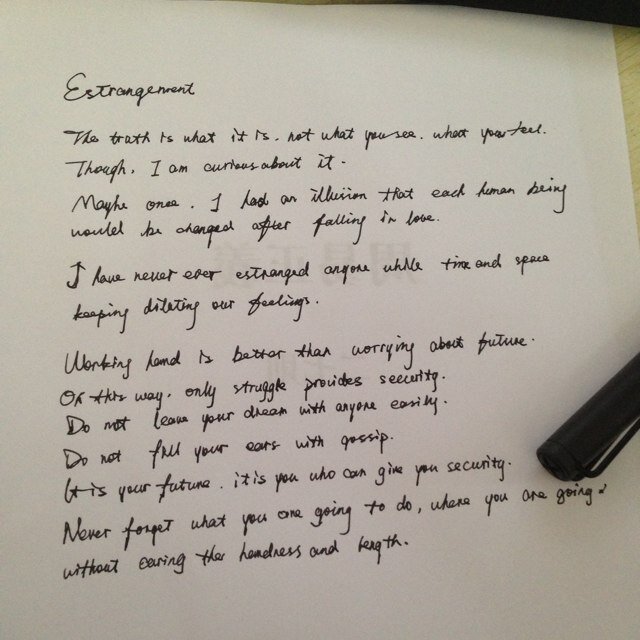 Estrangement
The truth is what it is. not what you see. what you feel.
Though, I am curious about it.
Maybe once, I had an illusion that each human being
would be changed after falling in love.
I have never ever estranged anyone while time and space
keeping diluting our feelings.
Working hard is better than worrying about future.
On this way, only struggle provides security.
Do not leave your dream with anyone easily.
Do not fill your ears with gossip.
It is your future. it is you who can give you security.
Never forget what you are going to do, where you are going?
without caring the hardness and length.